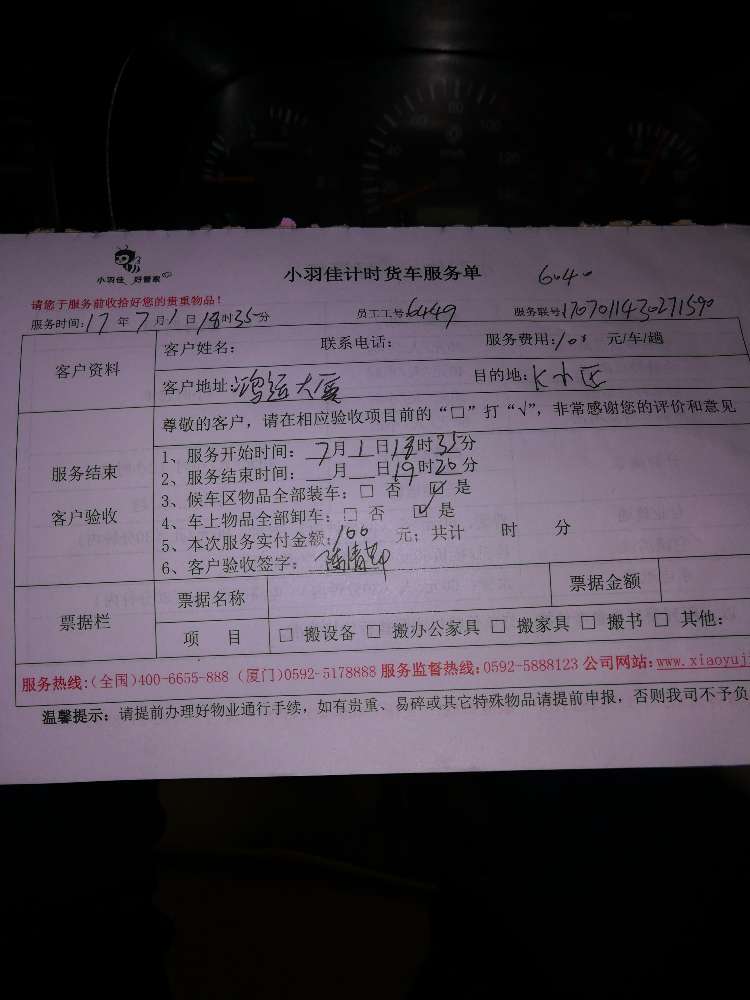 小羽佳 好管家
小羽佳计时货车服务单
请您于服务前收拾好您的贵重物品！
服务时间：17年7月1日18时35分 员工工号6449 服务联号1707011430271590
客户资料
客户姓名： 联系电话： 服务费用： 元/车/趟
客户地址：鸿运大厦 目的地：
尊敬的客户，请在相应验收项目前的“□”打“√”，非常感谢您的评价和意见
服务结束
客户验收
1、服务开始时间：7月1日18时35分
2、服务结束时间：__月__日19时20分
3、候车区物品全部装车：□ 否 ☑ 是
4、车上物品全部卸车：□ 否 ☑ 是
5、本次服务实付金额：100 元；共计 时 分
6、客户验收签字：
票据栏
票据名称 票据金额
项 目 □ 搬设备 □ 搬办公家具 □ 搬家具 □ 搬书 □ 其他：
服务热线：(全国)400-6655-888 (厦门)0592-5178888 服务监督热线：0592-5888123 公司网站：www.xiaoyuji
温馨提示：请提前办理好物业通行手续，如有贵重、易碎或其它特殊物品请提前申报，否则我司不予负